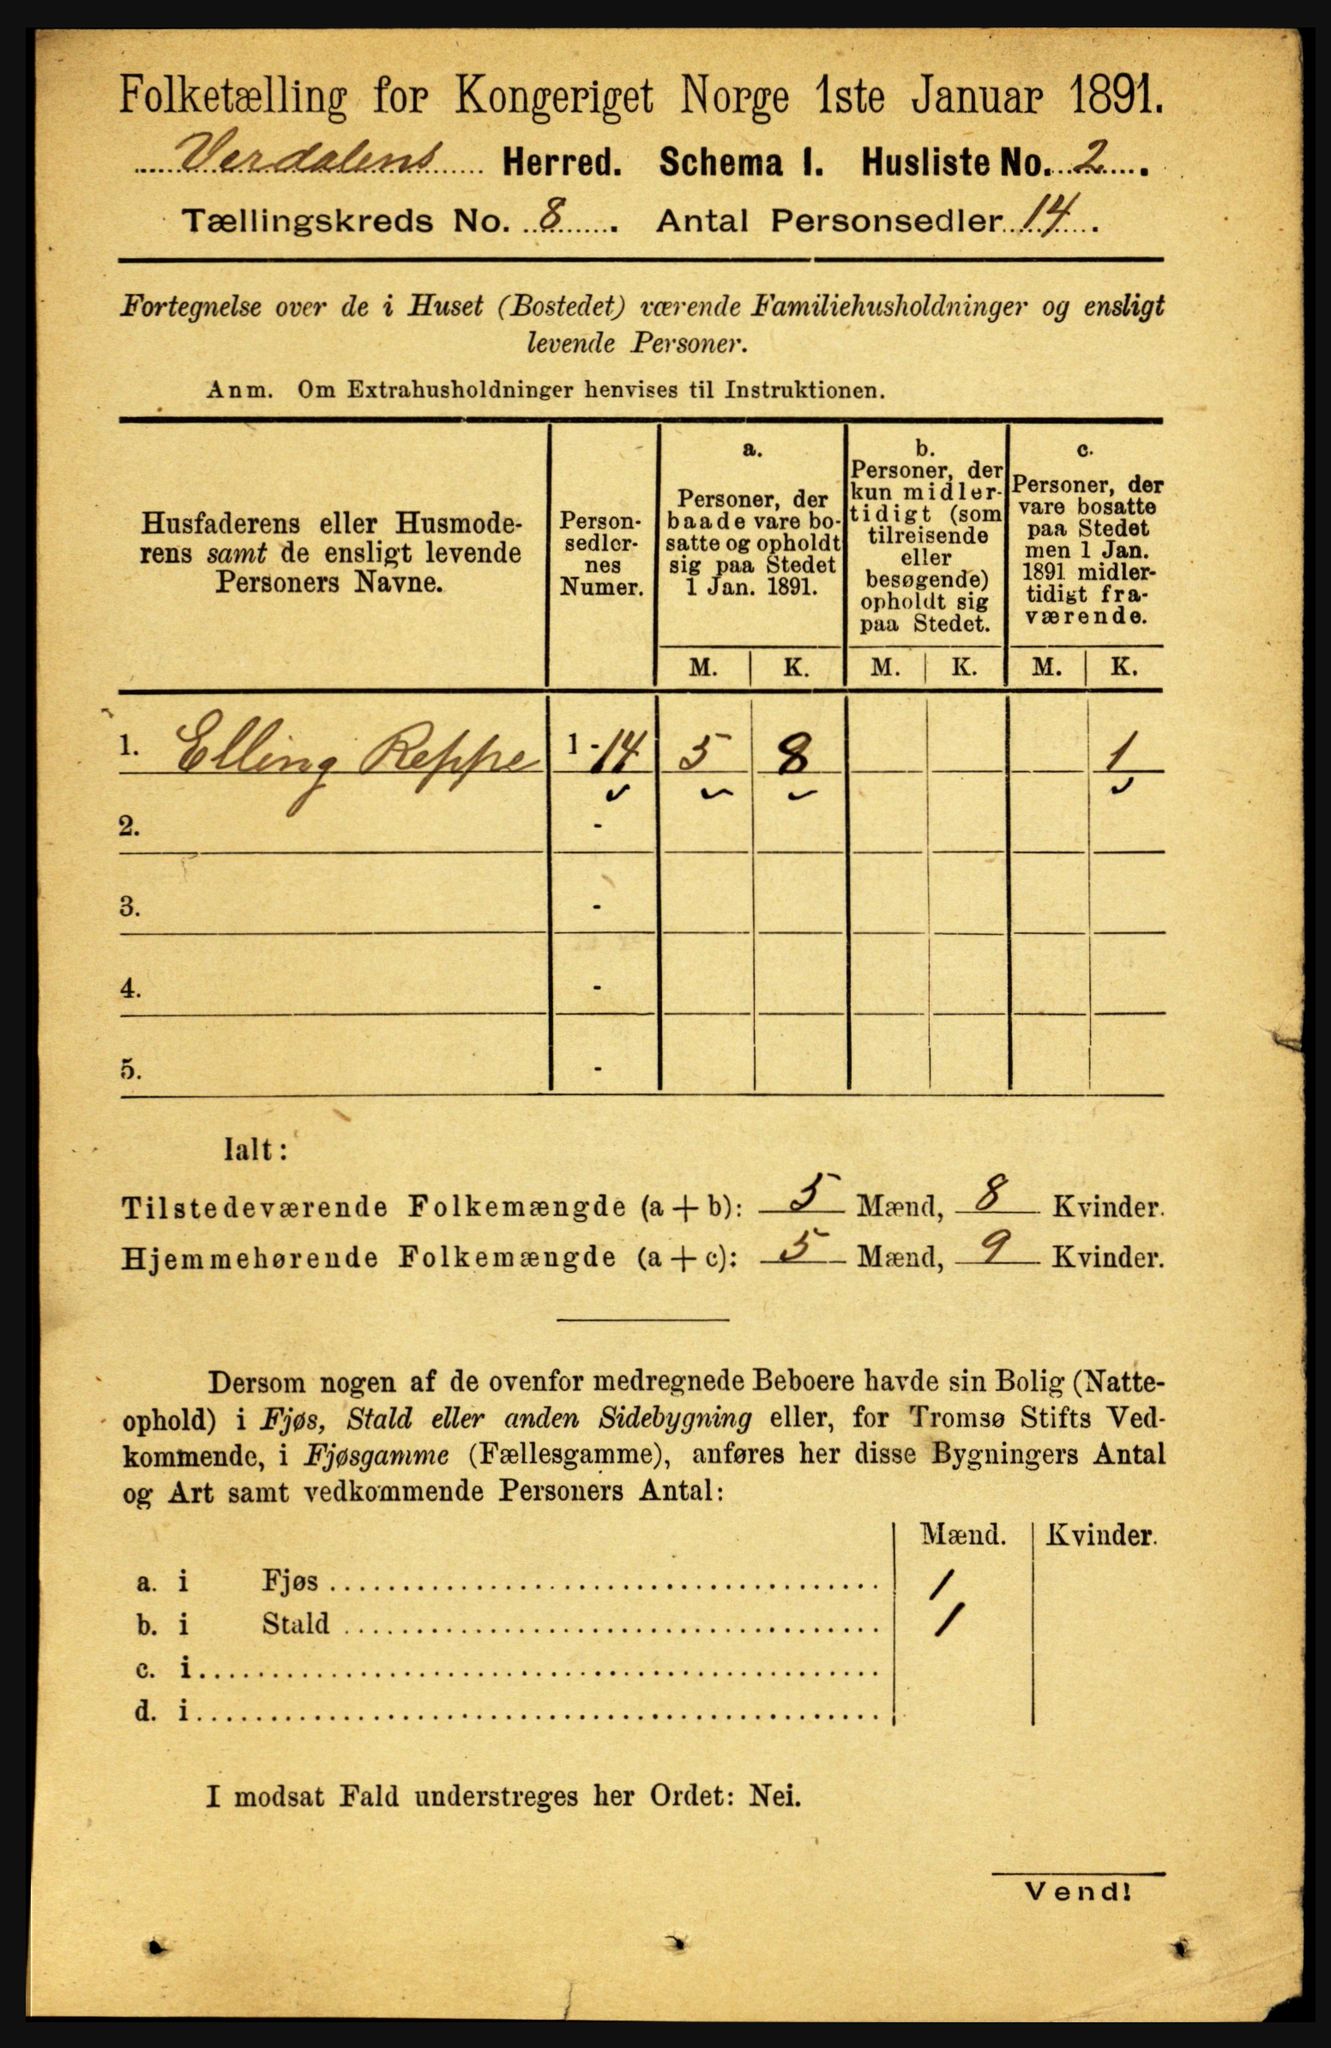 Folketælling for Kongeriget Norge 1ste Januar 1891.
Verdalens Herred. Schema 1. Husliste No. 2.
Tællingskreds No. 8. Antal Personsedler 14.
Fortegnelse over de i Huset (Bostedet) værende Familiehusholdninger og ensligt
levende Personer.
Anm. Om Extrahusholdninger henvises til Instruktionen.
Husfaderens eller Husmode-
rens samt de ensligt levende
Personers Navne.
Person-
sedler-
nes
Numer.
a.
Personer, der
baade vare bo-
satte og opholdt
sig paa Stedet
1 Jan. 1891.
b.
Personer, der
kun midler-
tidigt (som
tilreisende
eller
besøgende)
opholdt sig
paa Stedet.
c.
Personer, der
vare bosatte
paa Stedet
men 1 Jan.
1891 midler-
tidigt fra-
værende.
M. K. M. K. M. K.
1. Elling Reppe 1 - 14 5 8 1
2. -
3. -
4. -
5. -
Ialt:
Tilstedeværende Folkemængde (a + b): 5 Mænd, 8 Kvinder.
Hjemmehørende Folkemængde (a + c): 5 Mænd, 9 Kvinder.
Dersom nogen af de ovenfor medregnede Beboere havde sin Bolig (Natte-
ophold) i Fjøs, Stald eller anden Sidebygning eller, for Tromsø Stifts Ved-
kommende, i Fjøsgamme (Fællesgamme), anføres her disse Bygningers Antal
og Art samt vedkommende Personers Antal:
Mænd. Kvinder.
a. i Fjøs 1
b. i Stald 1
c. i
d. i
I modsat Fald understreges her Ordet: Nei.
Vend!